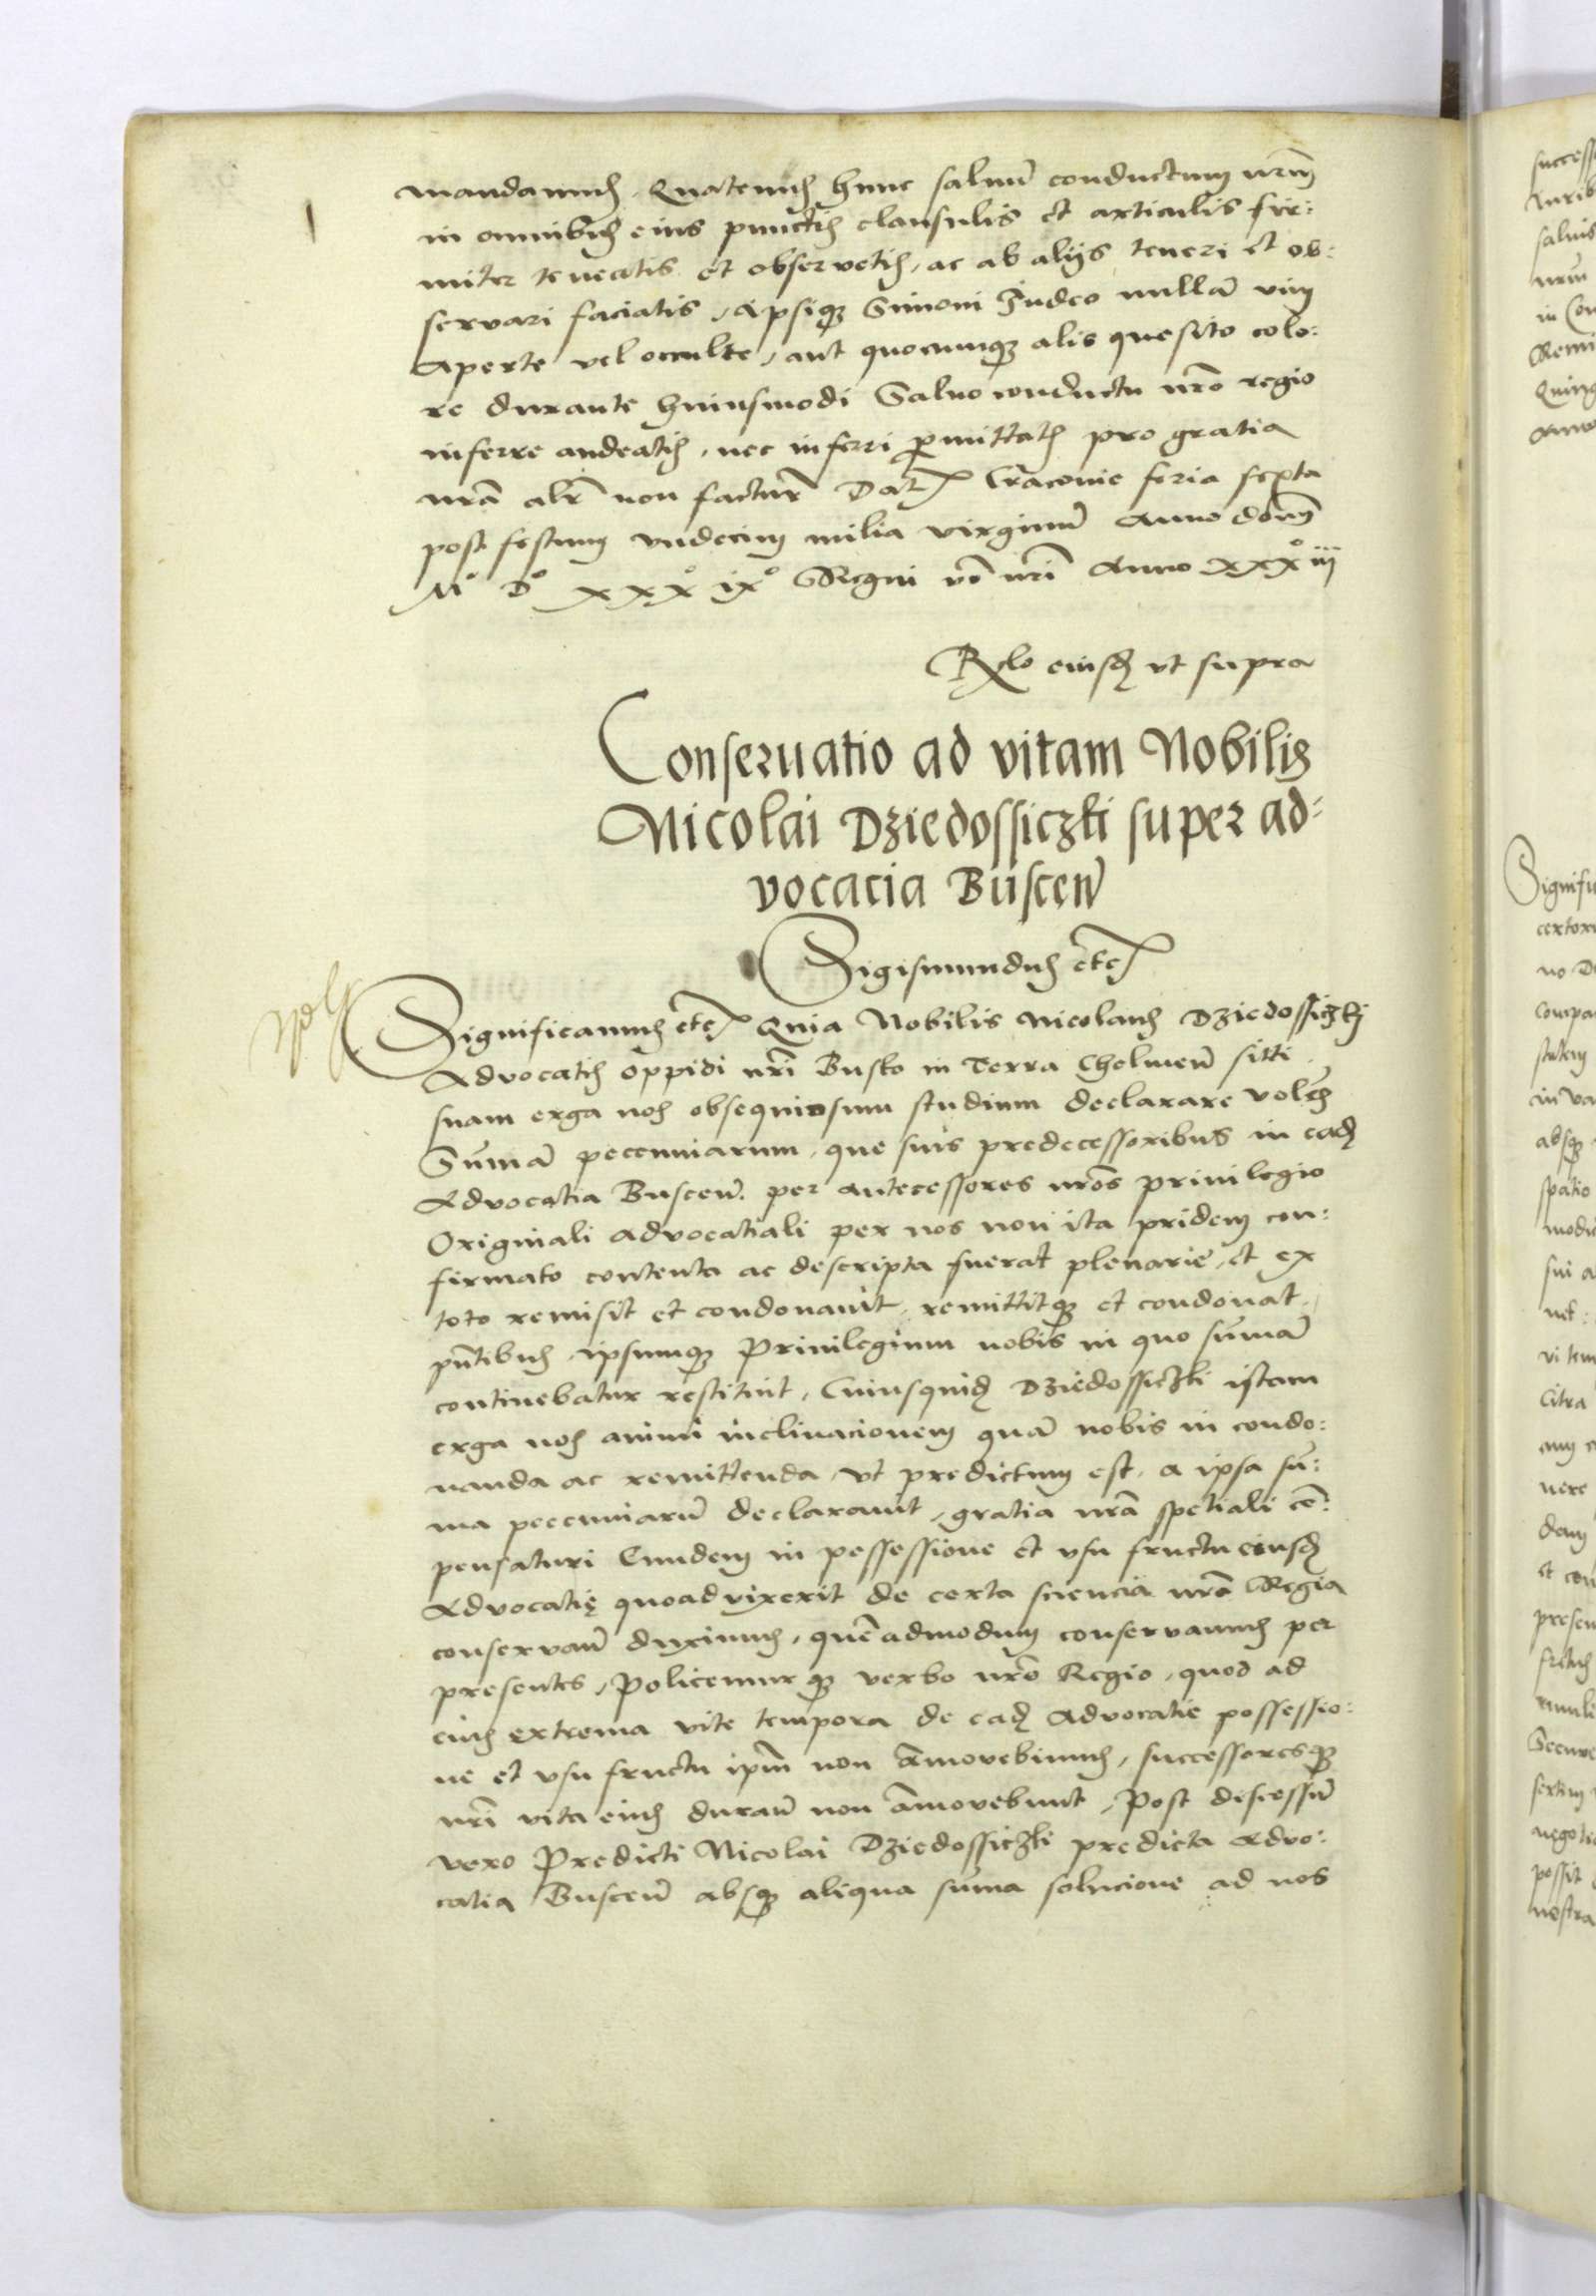 mandamus, Quatenus hunc saluū conductum nrm̄
in omnibus eius punctis clausulis et articulis fir:
miter teneatis et obseruetis, ac ab alijs teneri et ob:
seruari faciatis, Ipsiqꝫ Simoni Iudeo nullā vim
Aperte vel occulte, aut quocunqꝫ alis quesito colo:
re durante huiusmodi Saluo conductu nrō regio
inferre audeatis, nec inferri ꝑmittatis pro gratia
nrā alr̄ non factur̄ Dat Cracouie feria sexta
post festum vndecim milia virginū Anno domī
M° D° xxx° ix° Regni vō nrī Anno xxx° iij
Rela eiusdem vt supra
Conseruatio ad vitam Nobilis
Nicolai Dziedossiczki super ad-
vocacia Buscen̄
Sigismundus etc
Significamus etc Quia Nobilis Nicolaus Dziedossiczki
Aduocatus oppidi nrī Busko in Terra Chelmen̄ siti
suam erga nos obsequiosum studium declarare volens
Sumā pecuniarum, que suis predecessoribus in eadem
Aduocatia Buscen̄. per antecessores nrōs priuilegio
Originali aduocatiali per nos non ita pridem con:
firmato contenta ac descripta fuerat plenarie, et ex
toto remisit et condonauit, remittitqꝫ et condonat
pn̄tibus, ipsumqꝫ Priuilegium nobis in quo sumā
continebatur restituit, Cuiusquidem Dziedossiczki istam
erga nos animi inclinacionem quā nobis in condo:
nanda ac remittenda, vt predictum est, a ipsa sū:
ma pecuniarū declarauit, gratia nrā speciali cō:
pensaturi Eundem in possessione et vsu fructu eiusdem
Aduocatię quoad vixerit de certa sciencia nrā Regia
conseruan̄ duximus, quēadmodum conseruamus per
presentes, Policemurqꝫ verbo nrō Regio, quod ad
eius extrema vite tempora de eadem Aduocatie possessio:
ne et vsu fructu ipm̄ non Amouebimus, successoresqꝫ
nrī vita eius duran̄ non āmouebunt, Post discessū
vero Predicti Nicolai Dziedossiczki predicta Aduo:
catia Buscen̄ absqꝫ aliqua suma solucione ad nos